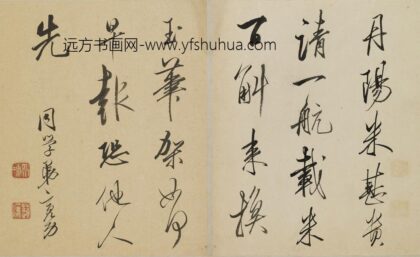 丹陽米甚貴
請一航載米
百斛来換
玉筆架如何
早報恐他人
先
同学弟
远方书画网-www.yfshuhua.com